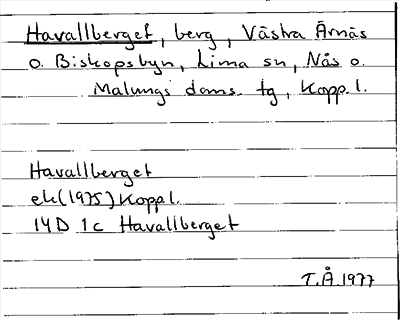 Havallberget, berg, Västra Ärnäs
o. Biskopsbyn, Lima sn, Nås o.
Malungs doms. tg, Kopp. l.
Havallberget
ek (1975) Kopp l.
14D 1c Havallberget
T.Å. 1977